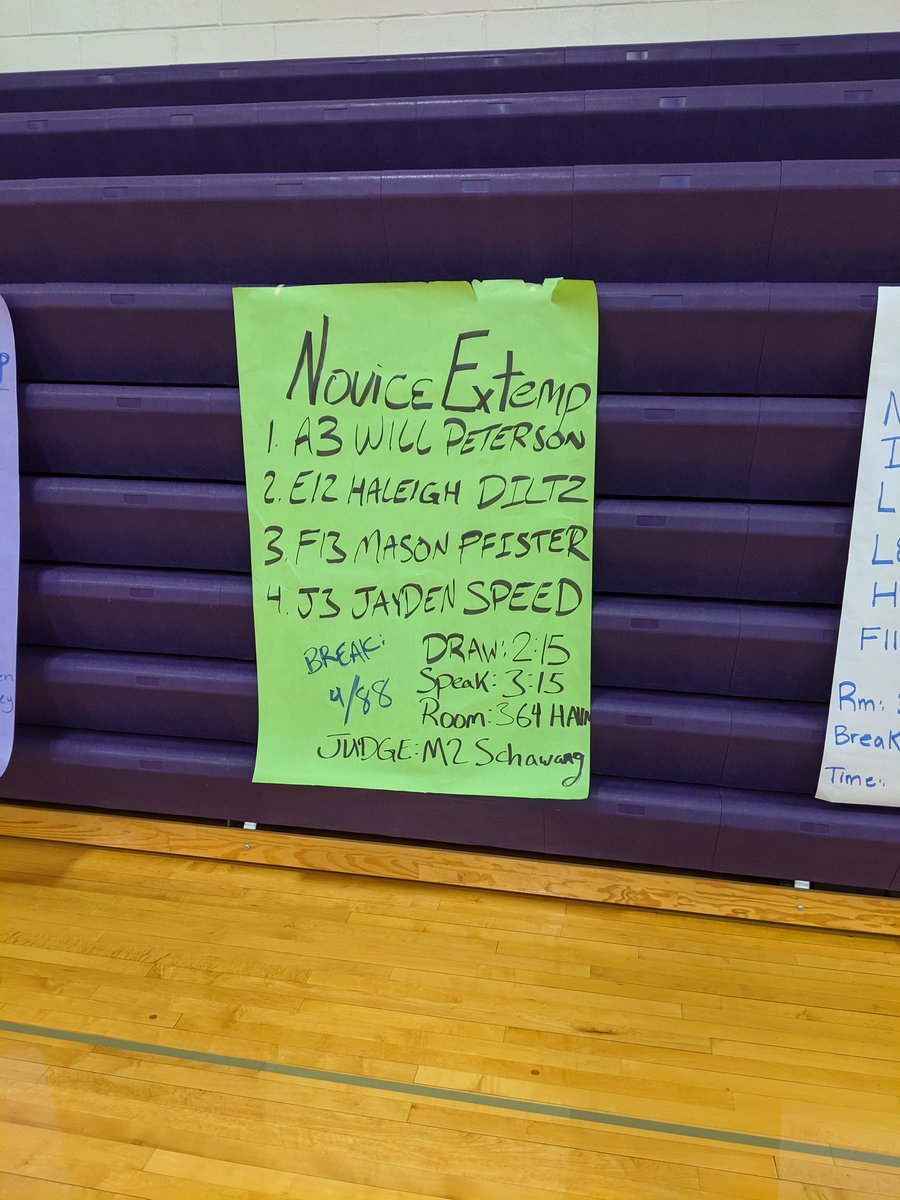 Novice Extemp
1. A3 WILL PETERSON
2. E12 HALEIGH DILTZ
3. F13 MASON PFISTER
4. J3 JAYDEN SPEED
BREAK:
4/88
DRAW: 2:15
Speak: 3:15
Room: 364
JUDGE: M2 Schawang
Rm:
Break
Time: